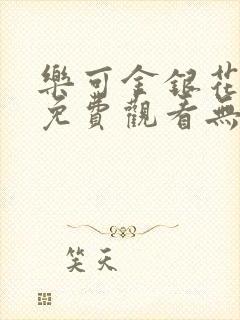 樂可金銀花
免費觀看無
笑天